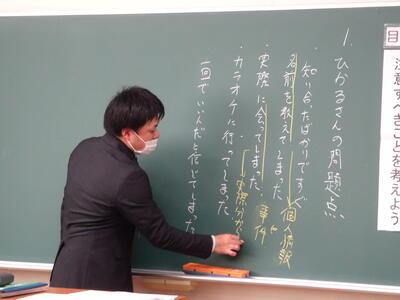 目
注意すべきことを考えよう
1. ひかるさんの問題点
・知り合ったばかりですぐ
名前を教えてしまった
個人情報
・実際に会ってしまった
事件に
実際分から
・カラオケに行ってしまった
・一回でいい人だと信じてしまった